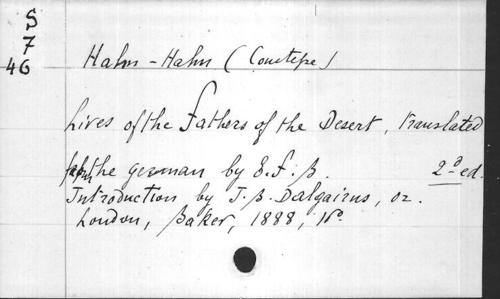 S
7
46
Hahn-Hahn (Comtesse)
Lives of the Fathers of the Desert, translated
from the german by E. F. B. 2d ed.
Introduction by J. B. Dalgairns, or.
London, Baker, 1888,